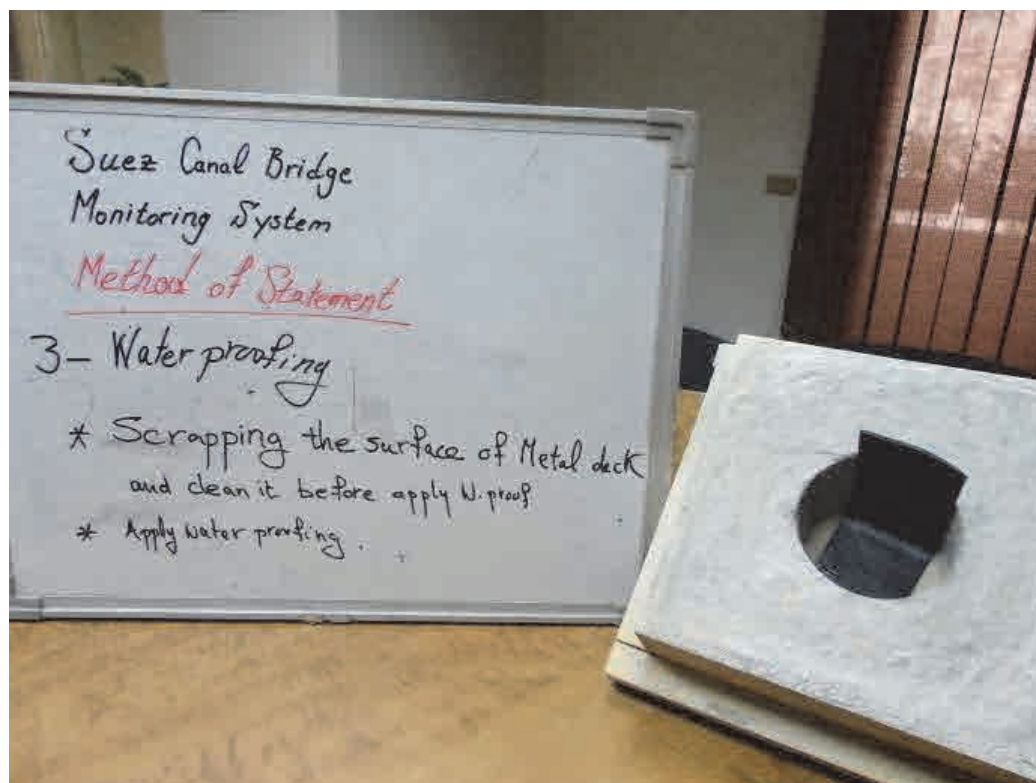 Suez Canal Bridge
Monitoring System
Method of Statement
3- Water proofing
* Scrapping the surface of Metal deck
and clean it before apply W.proof
* Apply water proofing .